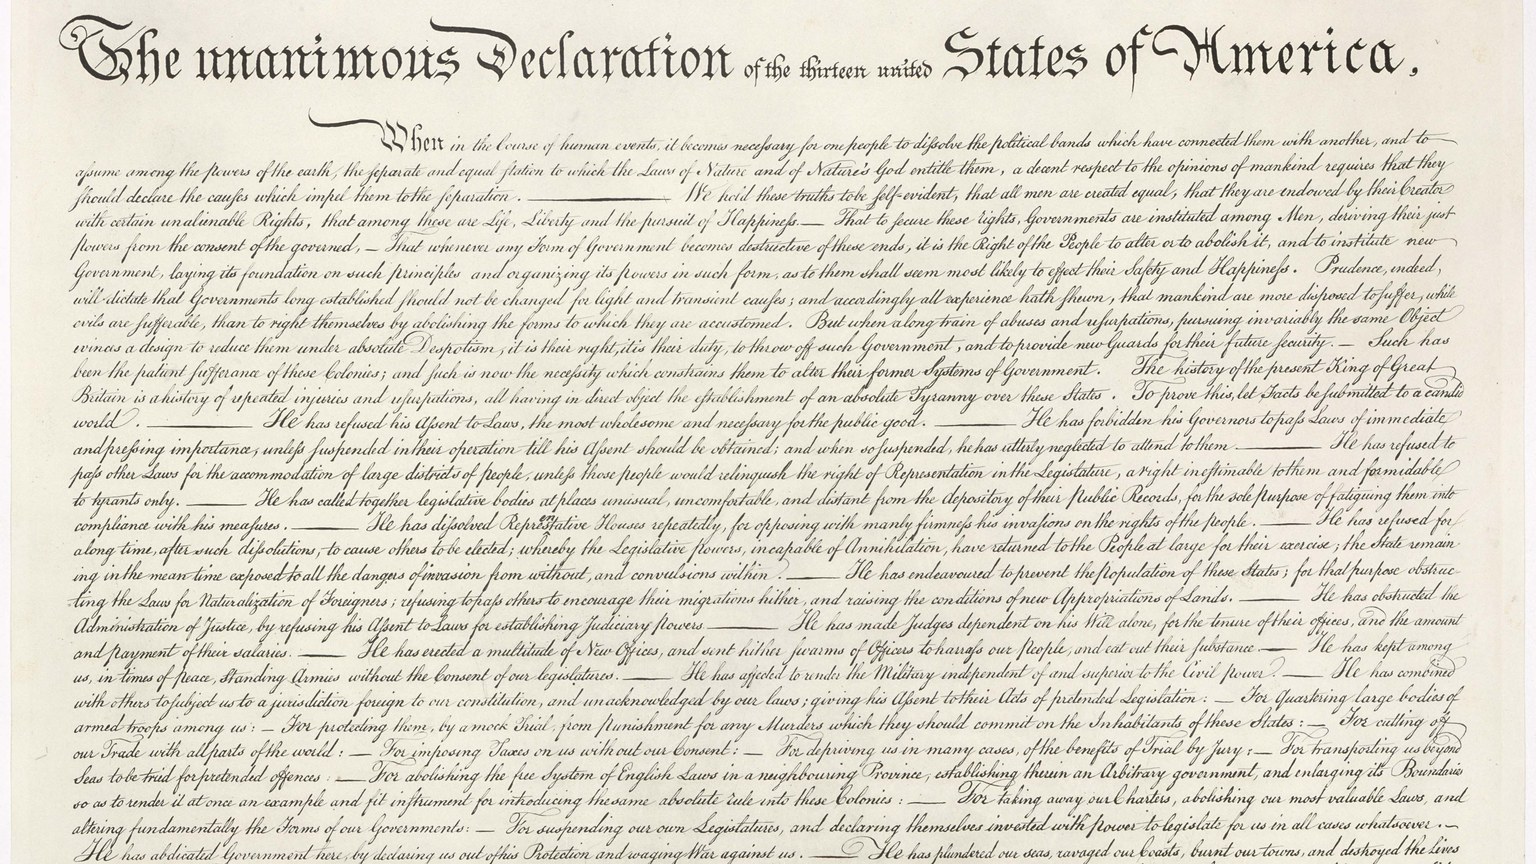 The unanimous Declaration of the thirteen united States of America,
When in the Course of human events, it becomes necessary for one people to dissolve the political bands which have connected them with another, and to
assume among the powers of the earth, the separate and equal station to which the Laws of Nature and of Nature's God entitle them, a decent respect to the opinions of mankind requires that they
should declare the causes which impel them to the separation. ——— We hold these truths to be self-evident, that all men are created equal, that they are endowed by their Creator
with certain unalienable Rights, that among these are Life, Liberty and the pursuit of Happiness.— That to secure these rights, Governments are instituted among Men, deriving their just
powers from the consent of the governed, — That whenever any Form of Government becomes destructive of these ends, it is the Right of the People to alter or to abolish it, and to institute new
Government, laying its foundation on such principles and organizing its powers in such form, as to them shall seem most likely to effect their Safety and Happiness. Prudence, indeed,
will dictate that Governments long established should not be changed for light and transient causes; and accordingly all experience hath shewn, that mankind are more disposed to suffer, while
evils are sufferable, than to right themselves by abolishing the forms to which they are accustomed. But when a long train of abuses and usurpations, pursuing invariably the same Object
evinces a design to reduce them under absolute Despotism, it is their right, it is their duty, to throw off such Government, and to provide new Guards for their future security.— Such has
been the patient sufferance of these Colonies; and such is now the necessity which constrains them to alter their former Systems of Government. The history of the present King of Great
Britain is a history of repeated injuries and usurpations, all having in direct object the establishment of an absolute Tyranny over these States. To prove this, let Facts be submitted to a candid
world. ——— He has refused his Assent to Laws, the most wholesome and necessary for the public good. ——— He has forbidden his Governors to pass Laws of immediate
and pressing importance, unless suspended in their operation till his Assent should be obtained; and when so suspended, he has utterly neglected to attend to them ——— He has refused to
pass other Laws for the accommodation of large districts of people, unless those people would relinquish the right of Representation in the Legislature, a right inestimable to them and formidable
to tyrants only. ——— He has called together legislative bodies at places unusual, uncomfortable, and distant from the depository of their Public Records, for the sole purpose of fatiguing them into
compliance with his measures. ——— He has dissolved Representative Houses repeatedly, for opposing with manly firmness his invasions on the rights of the people. ——— He has refused for
a long time, after such dissolutions, to cause others to be elected; whereby the Legislative powers, incapable of Annihilation, have returned to the People at large for their exercise; the State remain-
ing in the mean time exposed to all the dangers of invasion from without, and convulsions within. ——— He has endeavoured to prevent the population of these States; for that purpose obstruc-
ting the Laws for Naturalization of Foreigners; refusing to pass others to encourage their migrations hither, and raising the conditions of new Appropriations of Lands. ——— He has obstructed the
Administration of Justice, by refusing his Assent to Laws for establishing Judiciary powers ——— He has made Judges dependent on his Will alone, for the tenure of their offices, and the amount
and payment of their salaries. ——— He has erected a multitude of New Offices, and sent hither swarms of Officers to harrass our people, and eat out their substance.— He has kept among
us, in times of peace, Standing Armies without the Consent of our legislatures. ——— He has affected to render the Military independent of and superior to the Civil power. ——— He has combined
with others to subject us to a jurisdiction foreign to our constitution, and unacknowledged by our laws; giving his Assent to their Acts of pretended Legislation: — For Quartering large bodies of
armed troops among us: — For protecting them, by a mock Trial, from punishment for any Murders which they should commit on the Inhabitants of these States: — For cutting off
our Trade with all parts of the world: — For imposing Taxes on us without our Consent: — For depriving us in many cases, of the benefits of Trial by Jury: — For transporting us beyond
Seas to be tried for pretended offences — For abolishing the free System of English Laws in a neighbouring Province, establishing therein an Arbitrary government, and enlarging its Boundaries
so as to render it at once an example and fit instrument for introducing the same absolute rule into these Colonies: — For taking away our Charters, abolishing our most valuable Laws, and
altering fundamentally the Forms of our Governments: — For suspending our own Legislatures, and declaring themselves invested with power to legislate for us in all cases whatsoever.—
He has abdicated Government here, by declaring us out of his Protection and waging War against us. ——— He has plundered our seas, ravaged our Coasts, burnt our towns, and destroyed the lives